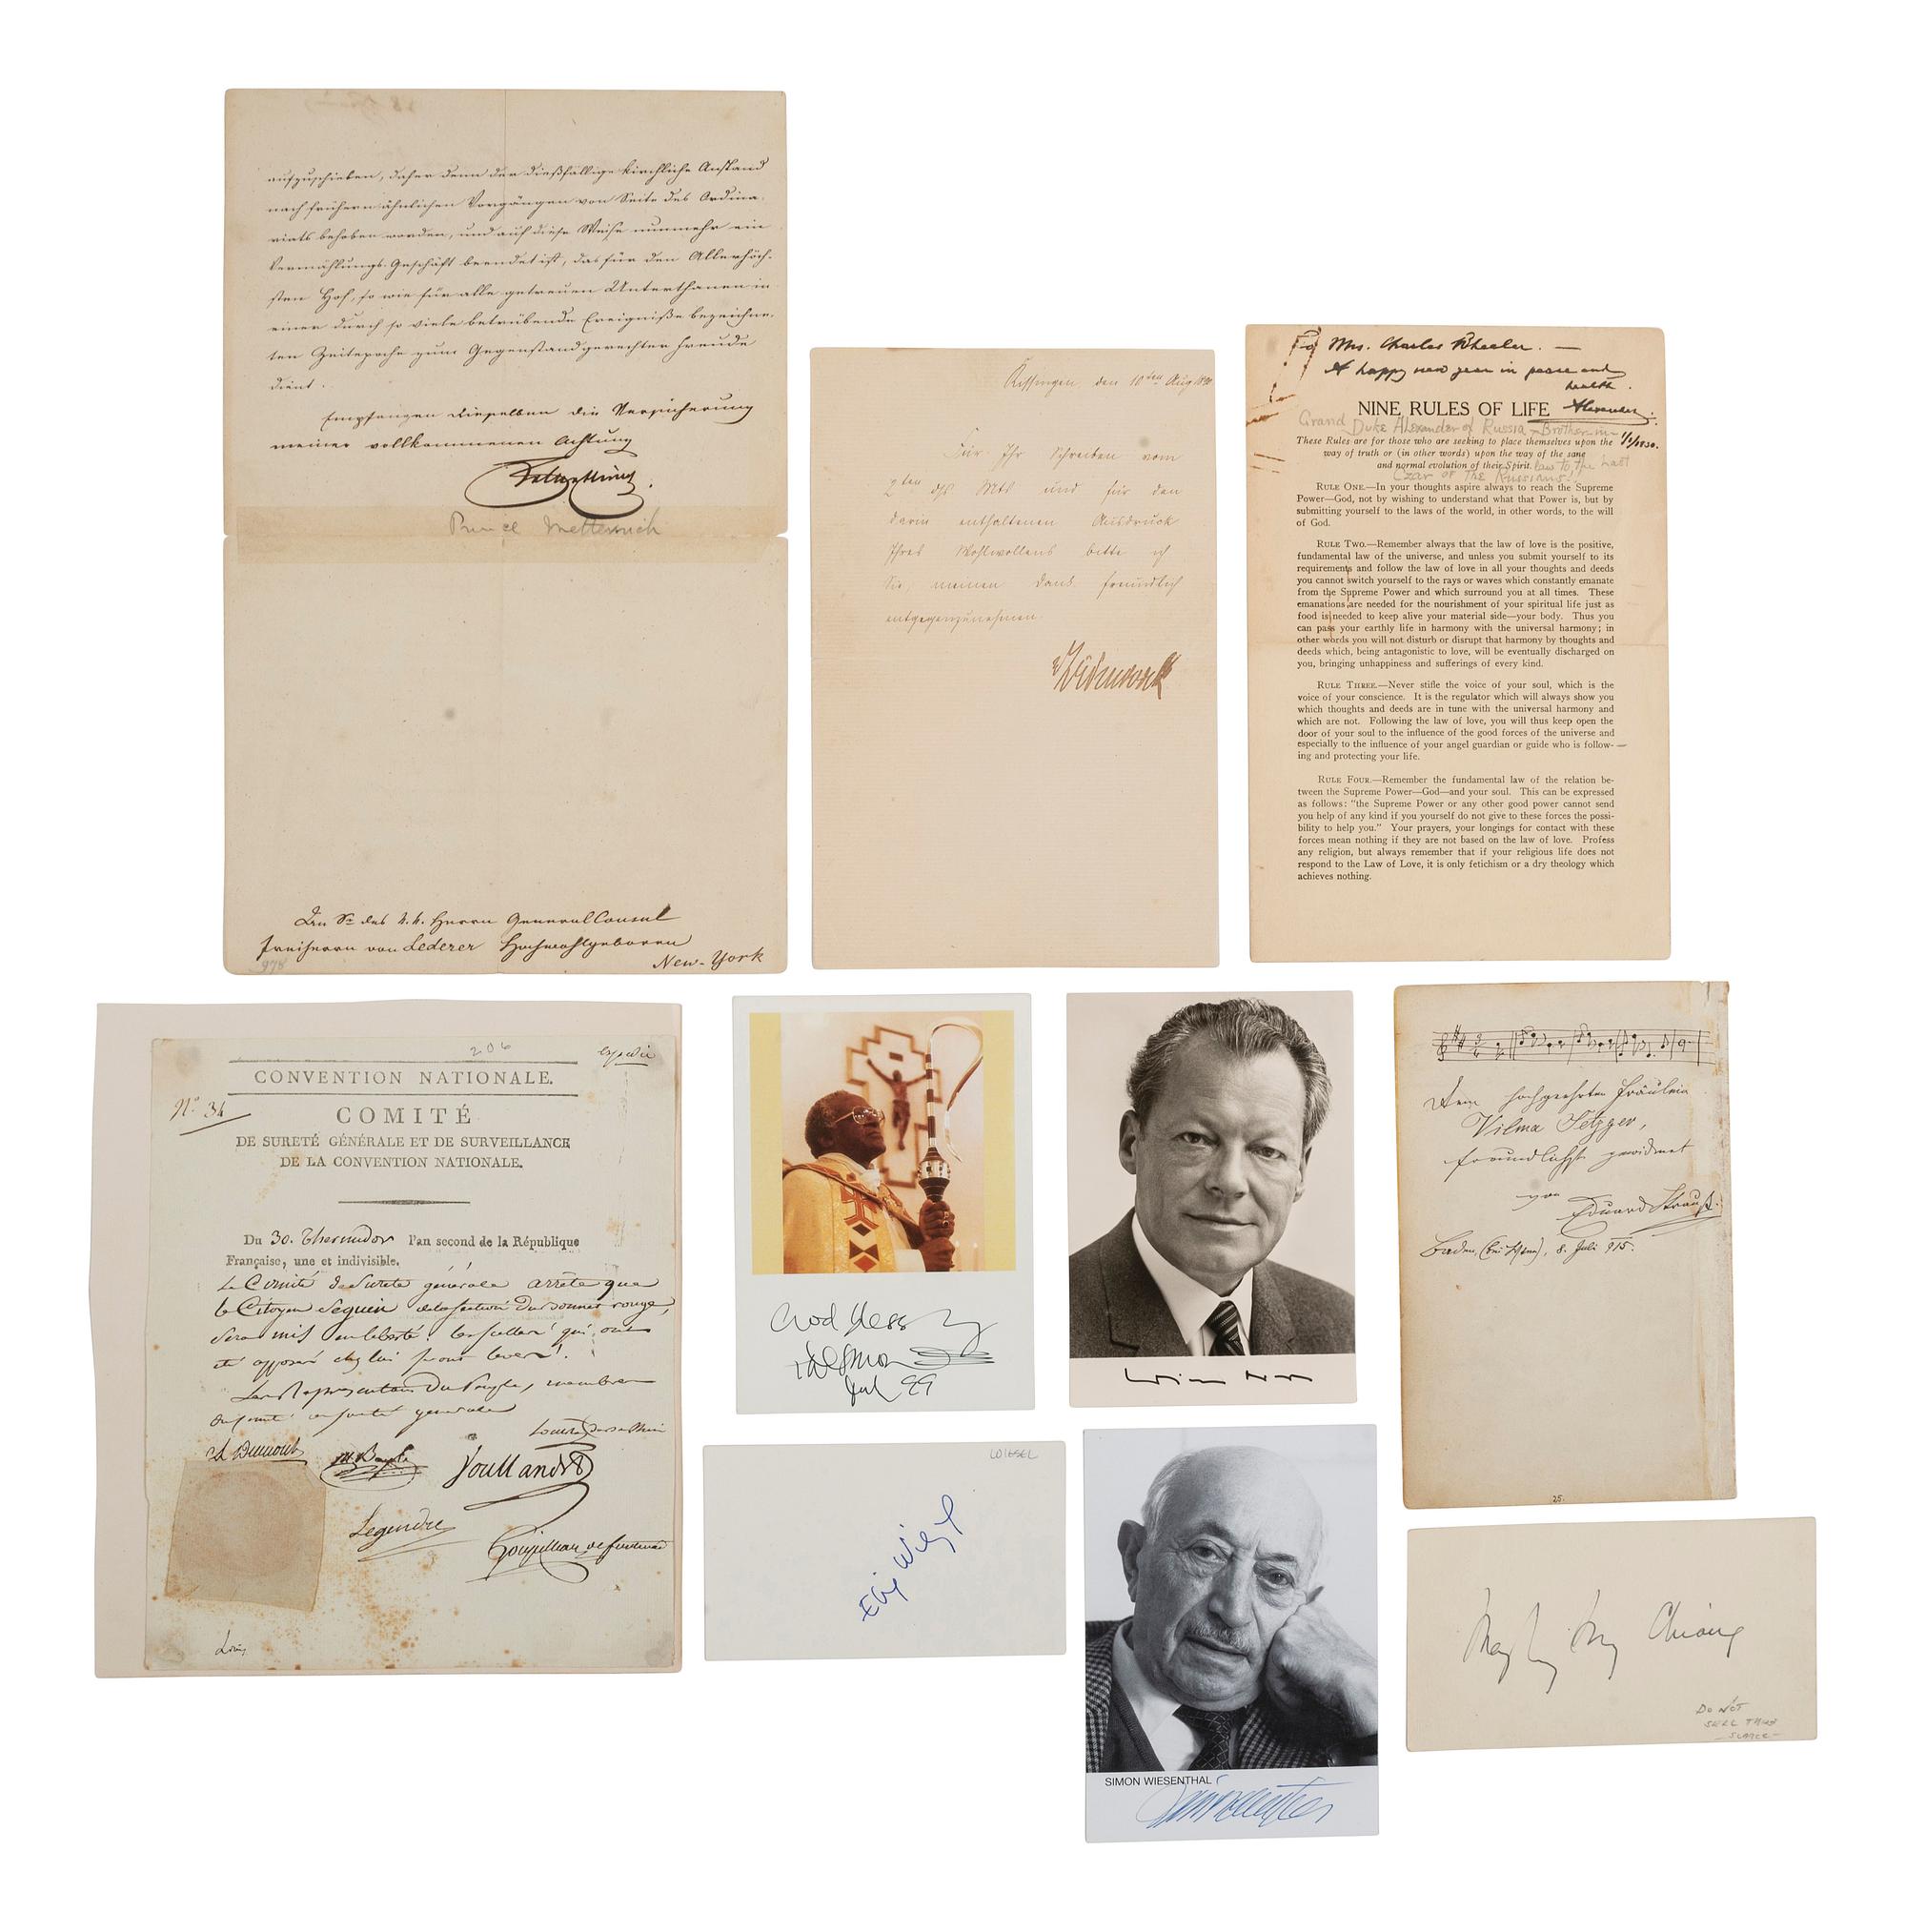 aufzuschieben, daher denn der dießfällige kirchliche Anstand
nach frühern ähnlichen Vorgängen von Seite des Ordina-
riats behoben worden, und auf diese Weise nunmehr ein
Vermählungs-Geschäft beendet ist, das für den Allerhöch-
sten Hof, so wie für alle getreuen Unterthanen in
einer durch so viele betrübende Ereigniße bezeichne-
ten Zeitepoche zum Gegenstand gerechter Freude
dient.
Empfangen dieselben die Versicherung
meiner vollkommenen Achtung
Prince Metternich
des k. k. Herrn General Consul
Freiherrn von Lederer Hochwohlgeboren
New-York
Kissingen, den 10ten Aug
Für Ihr Schreiben vom
und für den
darin enthaltenen Ausdruck
Ihres Wohlwollens bitte ich
Sie, meinen Dank freundlich
entgegenzunehmen.
vBismarck
To Mrs. Charles Wheeler. —
A happy new year in peace and
health.
NINE RULES OF LIFE Alexander.
Grand Duke Alexander of Russia - Brother-in-
1/1/1930.
These Rules are for those who are seeking to place themselves upon the
way of truth or (in other words) upon the way of the sane
and normal evolution of their Spirit.
law to the last
Czar of The Russians.
RULE ONE.—In your thoughts aspire always to reach the Supreme
Power—God, not by wishing to understand what that Power is, but by
submitting yourself to the laws of the world, in other words, to the will
of God.
RULE TWO.—Remember always that the law of love is the positive,
fundamental law of the universe, and unless you submit yourself to its
requirements and follow the law of love in all your thoughts and deeds
you cannot switch yourself to the rays or waves which constantly emanate
from the Supreme Power and which surround you at all times. These
emanations are needed for the nourishment of your spiritual life just as
food is needed to keep alive your material side—your body. Thus you
can pass your earthly life in harmony with the universal harmony; in
other words you will not disturb or disrupt that harmony by thoughts and
deeds which, being antagonistic to love, will be eventually discharged on
you, bringing unhappiness and sufferings of every kind.
RULE THREE.—Never stifle the voice of your soul, which is the
voice of your conscience. It is the regulator which will always show you
which thoughts and deeds are in tune with the universal harmony and
which are not. Following the law of love, you will thus keep open the
door of your soul to the influence of the good forces of the universe and
especially to the influence of your angel guardian or guide who is follow-
ing and protecting your life.
RULE FOUR.—Remember the fundamental law of the relation be-
tween the Supreme Power—God—and your soul. This can be expressed
as follows: "the Supreme Power or any other good power cannot send
you help of any kind if you yourself do not give to these forces the possi-
bility to help you." Your prayers, your longings for contact with these
forces mean nothing if they are not based on the law of love. Profess
any religion, but always remember that if your religious life does not
respond to the Law of Love, it is only fetichism or a dry theology which
achieves nothing.
206
CONVENTION NATIONALE.
N° 34
COMITÉ
DE SURETÉ GÉNÉRALE ET DE SURVEILLANCE
DE LA CONVENTION NATIONALE.
Du 30. Thermidor l'an second de la République
Française, une et indivisible.
Le Comité de Sureté générale arrête que
le Citoyen Seguin de la section du bonnet rouge,
sera mis en liberté. les scellés qui ont
été apposés chez lui seront levés.
Les Représentans du Peuple, membres
du comité de sureté generale
Louis du bas Rhin
A Dumont
M. Bayle
Voulland
Legendre
Goupilleau de fontenai
God bless
Jul 99
WIESEL
Elie Wiesel
SIMON WIESENTHAL
Dem hochgeehrten Fräulein
Vilma
freundlichst gewidmet
von
Eduard Strauß.
Baden (bei Wien), 8. Juli 915.
25.
Mayling Chiang
DO NOT